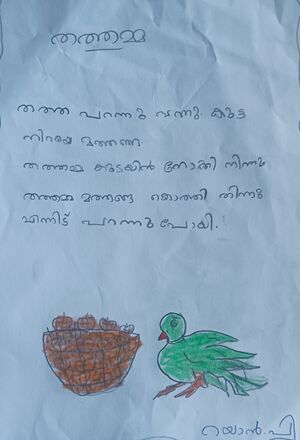 തത്തമ്മ
തത്ത പറന്നു വന്നു. കുട്ട
നിറയെ മത്തങ്ങ.
തത്തമ്മ കുടയിൻ നോക്കി നിന്നു
തത്തമ്മ മത്തങ്ങ കൊത്തി തിന്നു
എന്നിട് പറന്നു പോയി.!
റയാൻ.പി